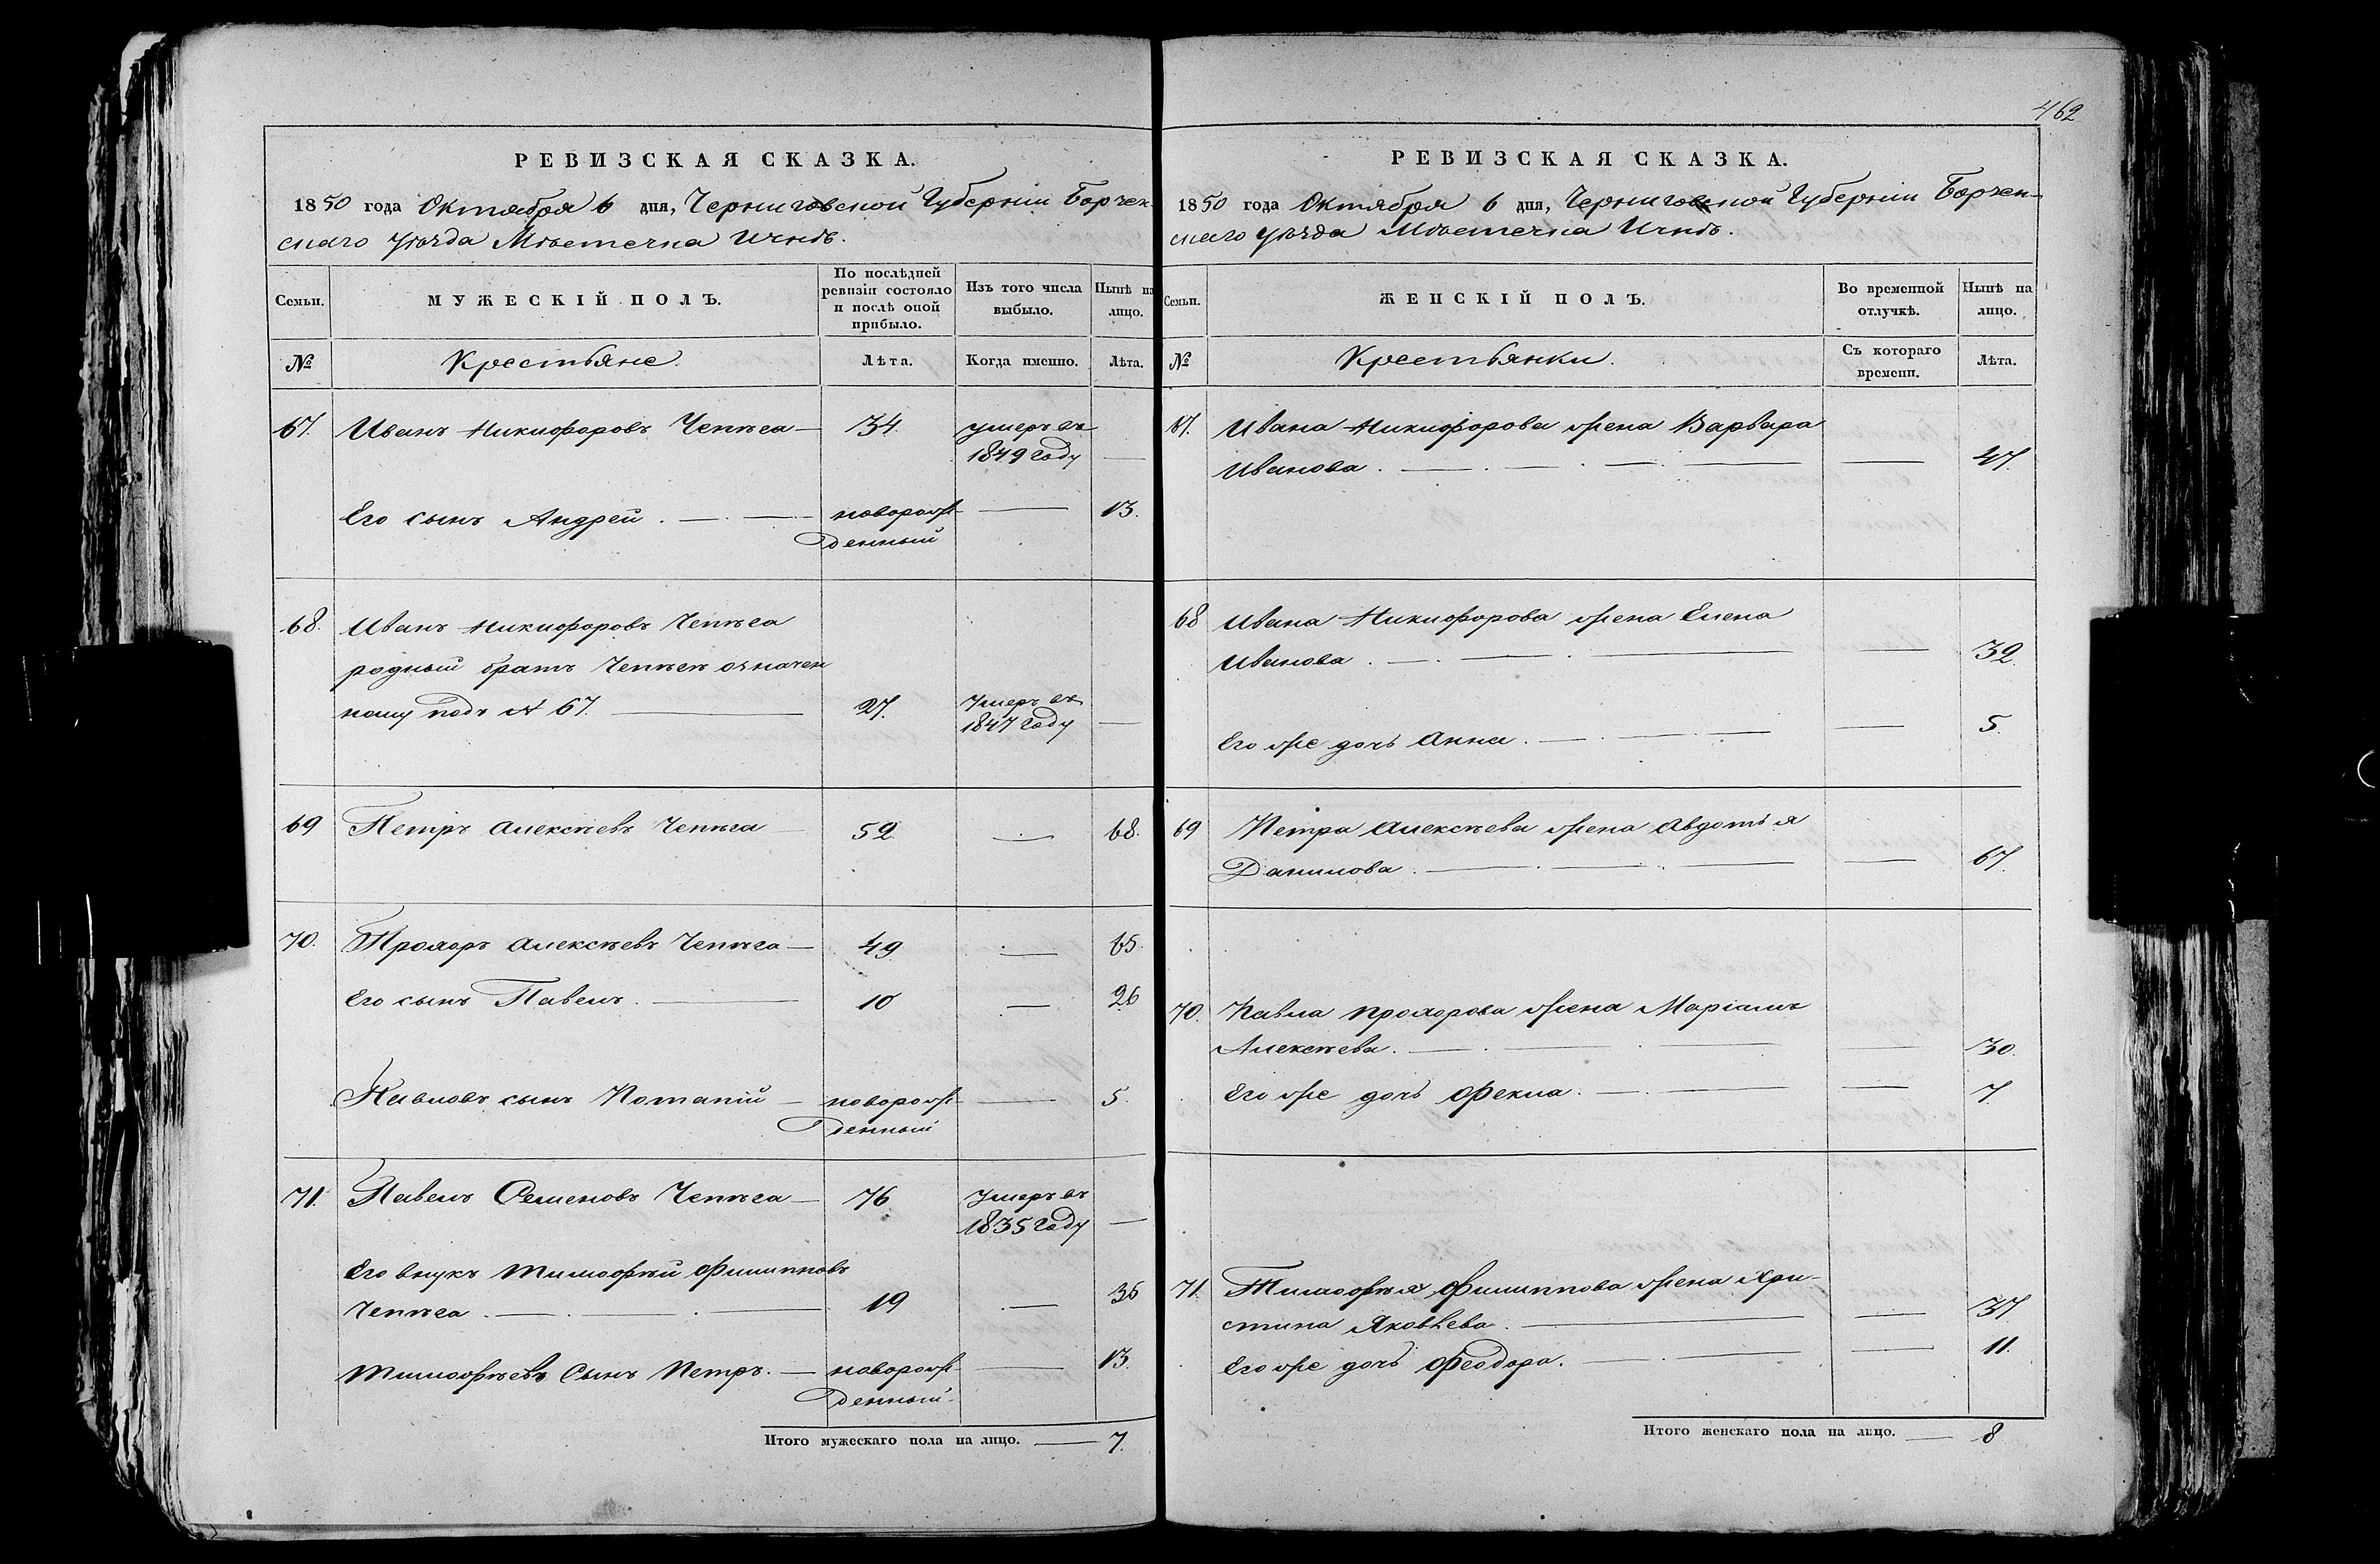 462
РЕВИЗСКАЯ СКАЗКА.
1850 года Октября 6 дня, Черниговской Губерніи Борзен-
скаго уѣзда Мѣстечка Ичнѣ.
Семьи. МУЖЕСКІЙ ПОЛЪ. По послѣдней ревизіи состояло и послѣ оной прибыло. Изъ того числа выбыло. Нынѣ на лицо.
№ Крестьяне. Лѣта. Когда именно. Лѣта.
67. Иванъ Никифоровъ Чепѣга — 34 умеръ въ
1849 году —
Его сынъ Андрей. — новорож- — 13.
денный
68. Иванъ Никифоровъ Чепѣга
родный братъ Чепѣгѣ означен
ному подъ № 67. — 27. Умеръ въ
1847 году —
69 Петръ Алексѣевъ Чепѣга — 52. — 68.
70. Прохоръ Алексѣевъ Чепѣга — 49 — 65.
Его сынъ Павелъ. — 10 — 26
Павловъ сынъ Потапій — новорож- — 5.
денный
71. Павелъ Семеновъ Чепѣга — 76 Умеръ въ
1835 году —
Его внукъ Тимофѣй Филипповъ
Чепѣга. — 19 — 35
Тимофѣевъ Сынъ Петръ. — новорож- — 13.
денный.
Итого мужескаго пола на лицо. — 7.
РЕВИЗСКАЯ СКАЗКА.
1850 года Октября 6 дня, Черниговской Губерніи Борзен-
скаго уѣзда Мѣстечка Ичнѣ.
Семьи. ЖЕНСКІЙ ПОЛЪ. Во временной отлучкѣ. Нынѣ на лицо.
№ Крестьянки. Съ котораго времени. Лѣта.
67. Ивана Никифорова жена Варвара
Иванова. — — 47.
68 Ивана Никифорова жена Елена
Иванова. — — 32.
Его же дочь Анна. — — 5.
69 Петра Алексѣева жена Авдотья
Данилова. — — 67.
70. Павла Прохорова жена Маріамъ
Алексѣева. — — 30.
Его же дочь Фекла. — — 7.
71. Тимофѣя Филиппова жена Хри-
стина Яковлева. — — 37
Его же дочь Феодора. — — 11.
Итого женскаго пола на лицо. — 8